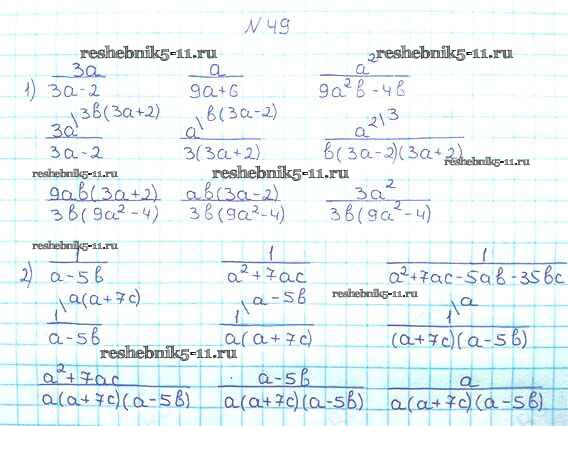 № 49
reshebnik5-11.ru reshebnik5-11.ru
1) 3a/(3a-2) a/(9a+6) a²/(9a²в-4в)
3a\3в(3a+2) a\в(3a-2) a²\3
3a-2 3(3a+2) в(3a-2)(3a+2)
reshebnik5-11.ru
reshebnik5-11.ru reshebnik5-11.ru
9aв(3a+2) aв(3a-2) 3a²
3в(9a²-4) 3в(9a²-4) 3в(9a²-4)
reshebnik5-11.ru
2) 1/(a-5в) 1/(a²+7ac) 1/(a²+7ac-5aв-35вc)
reshebnik5-11.ru
1\a(a+7c) 1\a-5в 1\a
a-5в a(a+7c) (a+7c)(a-5в)
reshebnik5-11.ru
a²+7ac a-5в a
a(a+7c)(a-5в) a(a+7c)(a-5в) a(a+7c)(a-5в)